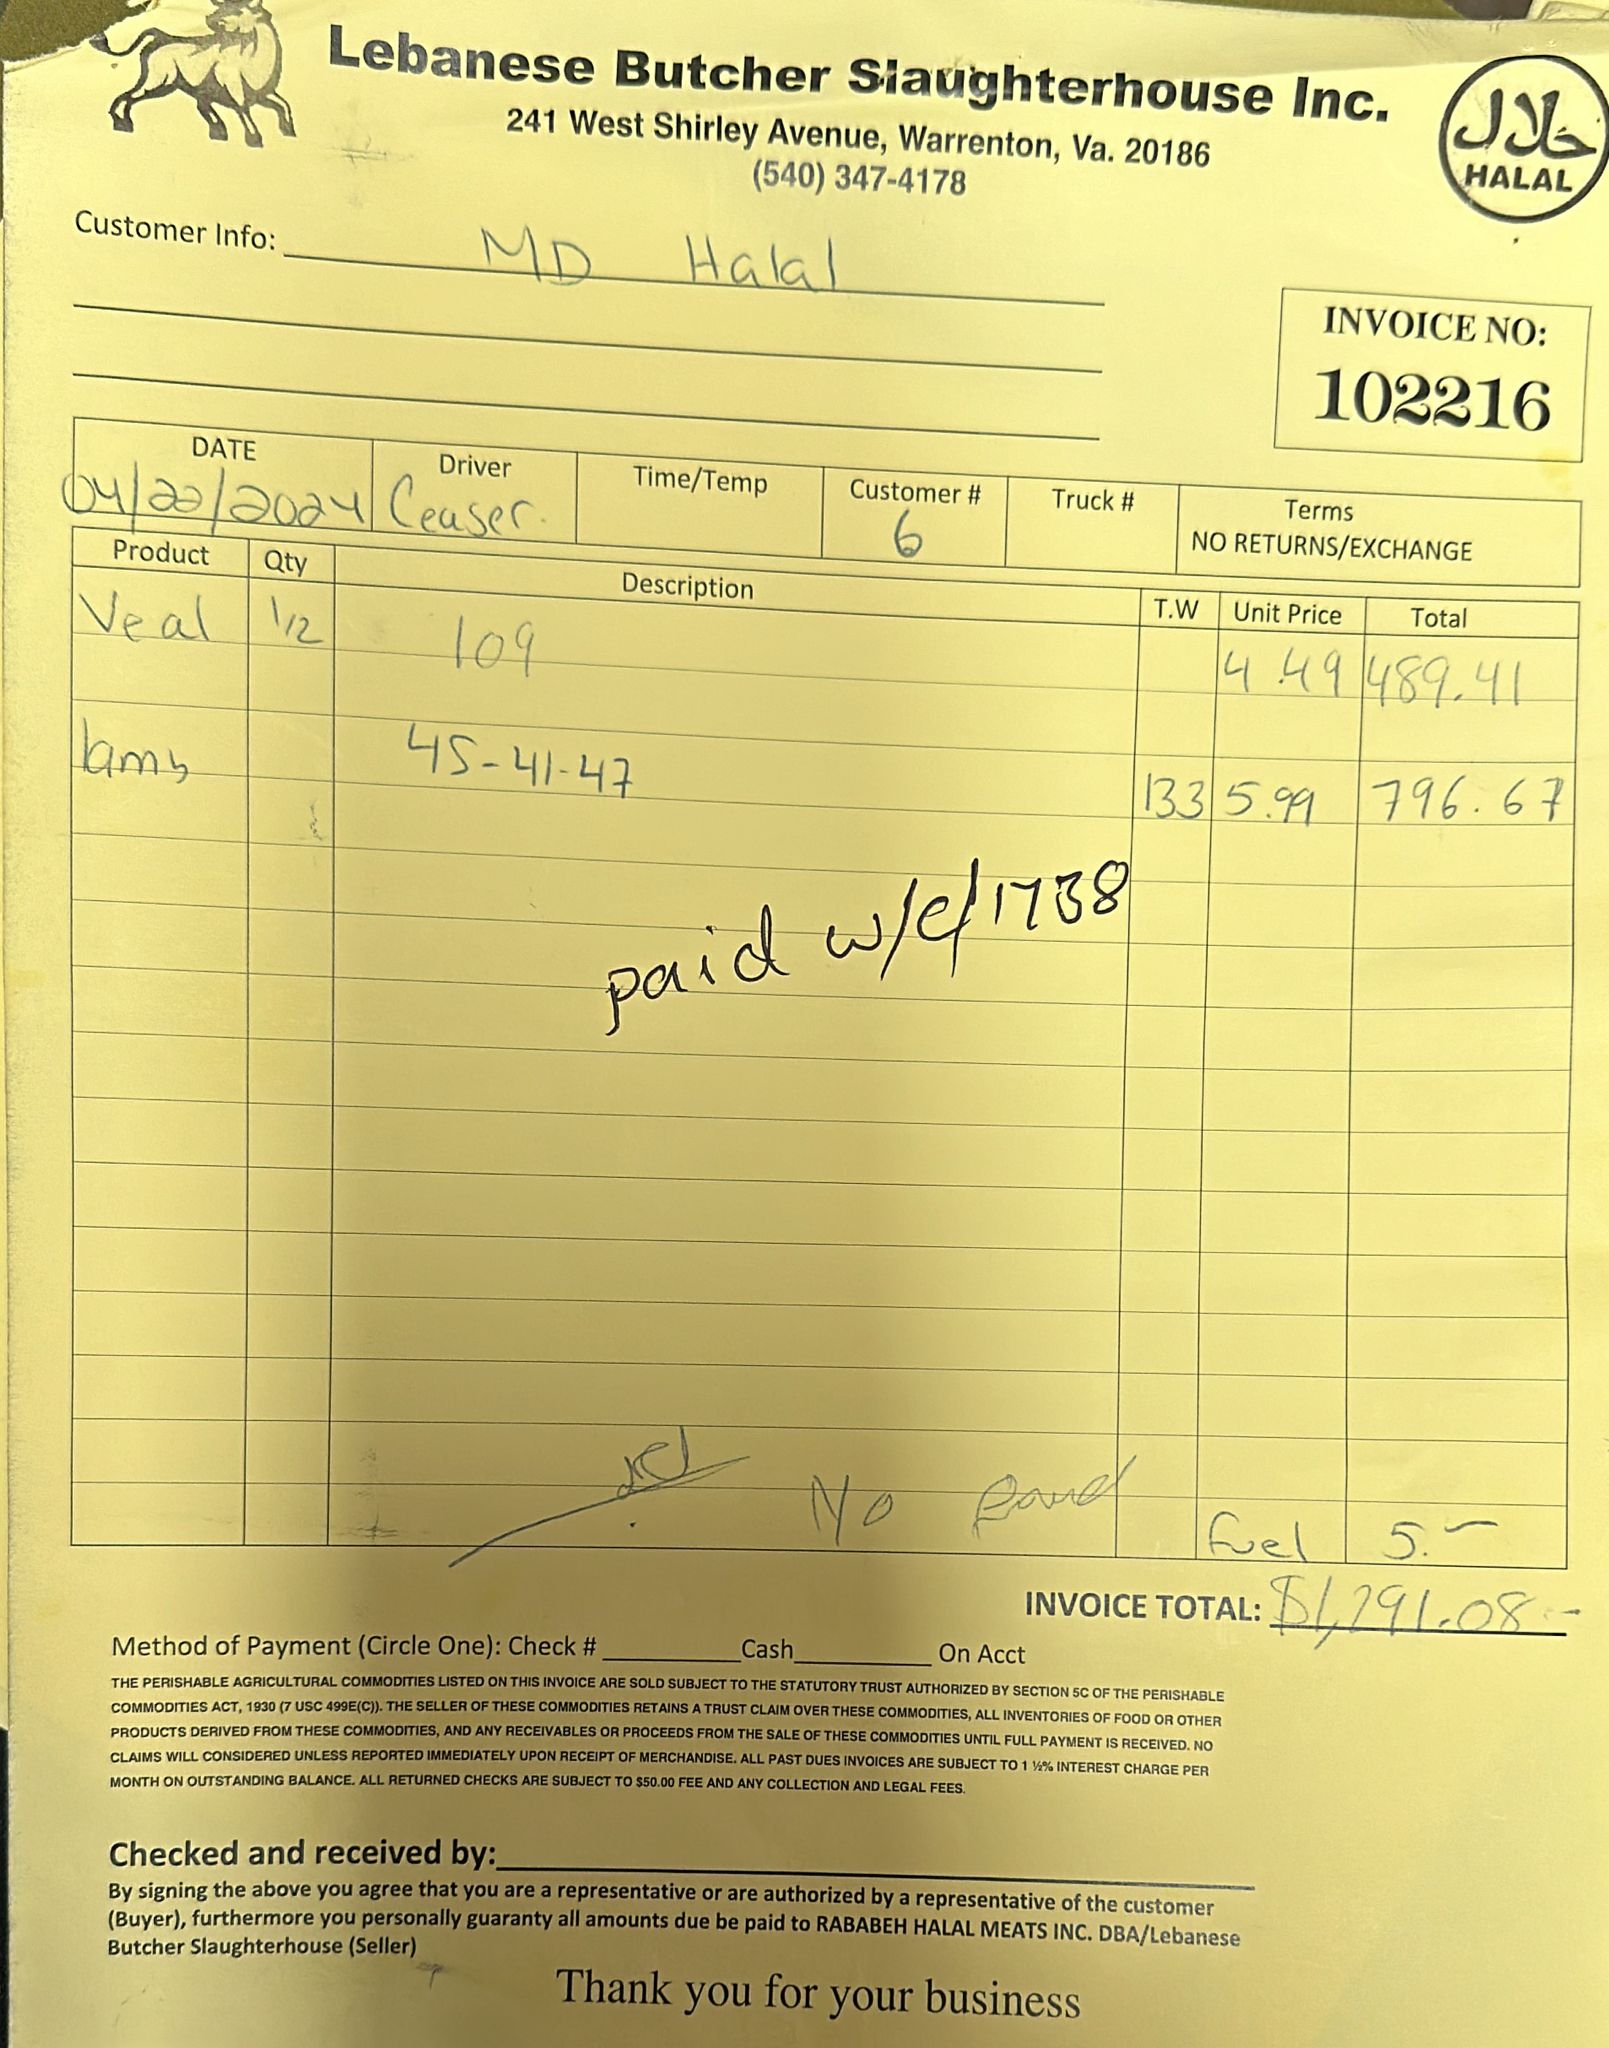 Lebanese Butcher Slaughterhouse Inc.
241 West Shirley Avenue, Warrenton, Va. 20186
(540) 347-4178
حلال
HALAL
Customer Info: MD Halal
INVOICE NO:
102216
DATE Driver Time/Temp Customer # Truck # Terms
04/22/2024 Ceaser. 6 NO RETURNS/EXCHANGE
Product Qty Description T.W Unit Price Total
Veal 1/2 109 4.49 489.41
lamb 45-41-47 133 5.99 796.67
paid w/c/1738
No Paid
fuel 5.-
INVOICE TOTAL: $1,291.08-
Method of Payment (Circle One): Check # Cash On Acct
THE PERISHABLE AGRICULTURAL COMMODITIES LISTED ON THIS INVOICE ARE SOLD SUBJECT TO THE STATUTORY TRUST AUTHORIZED BY SECTION 5C OF THE PERISHABLE
COMMODITIES ACT, 1930 (7 USC 499E(C)). THE SELLER OF THESE COMMODITIES RETAINS A TRUST CLAIM OVER THESE COMMODITIES, ALL INVENTORIES OF FOOD OR OTHER
PRODUCTS DERIVED FROM THESE COMMODITIES, AND ANY RECEIVABLES OR PROCEEDS FROM THE SALE OF THESE COMMODITIES UNTIL FULL PAYMENT IS RECEIVED. NO
CLAIMS WILL CONSIDERED UNLESS REPORTED IMMEDIATELY UPON RECEIPT OF MERCHANDISE. ALL PAST DUES INVOICES ARE SUBJECT TO 1 ½% INTEREST CHARGE PER
MONTH ON OUTSTANDING BALANCE. ALL RETURNED CHECKS ARE SUBJECT TO $50.00 FEE AND ANY COLLECTION AND LEGAL FEES.
Checked and received by:
By signing the above you agree that you are a representative or are authorized by a representative of the customer
(Buyer), furthermore you personally guaranty all amounts due be paid to RABABEH HALAL MEATS INC. DBA/Lebanese
Butcher Slaughterhouse (Seller)
Thank you for your business